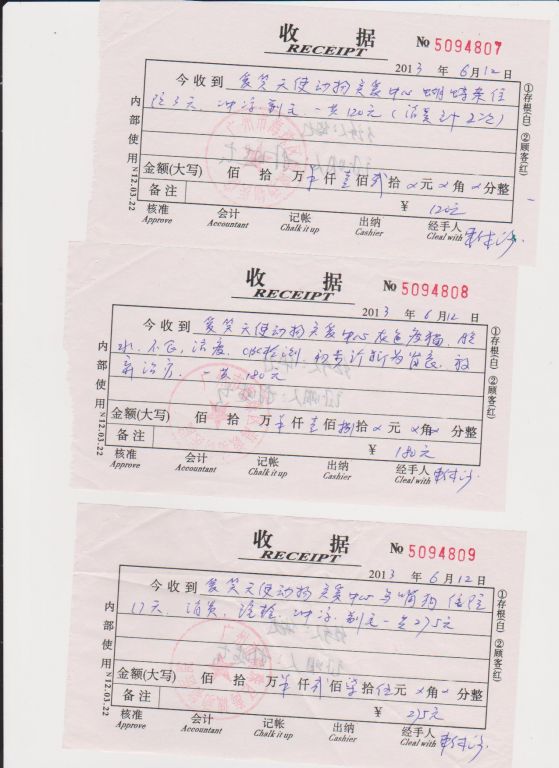 收 据
RECEIPT
No 5094807
2013 年 6 月 12 日
今收到 爱笑天使动物关爱中心 蝴蝶条住
院3天、冲凉、剃毛、一共120元(消炎针2次)
内部使用 N12.03.22
①存根(白) ②顾客(红)
金额(大写) 佰 拾 万 仟 壹 佰 贰 拾 元 角 分整
备注 ¥ 120元
核准 会计 记帐 出纳 经手人
Approve Accountant Chalk it up Cashier Cleal with
收 据
RECEIPT
No 5094808
2013 年 6 月 12 日
今收到 爱笑天使动物关爱中心 灰色疫猫、脱
水、不食、治疗、CBC检测、初步诊断为胃衰、放
弃治疗、一共180元
内部使用 N12.03.22
①存根(白) ②顾客(红)
金额(大写) 佰 拾 万 仟 壹 佰 捌 拾 元 角 分整
备注 ¥ 180元
核准 会计 记帐 出纳 经手人
Approve Accountant Chalk it up Cashier Cleal with
收 据
RECEIPT
No 5094809
2013 年 6 月 12 日
今收到 爱笑天使动物关爱中心 乌嘴狗 住院
17天、消炎、冲凉、剃毛 一共275元
内部使用 N12.03.22
①存根(白) ②顾客(红)
金额(大写) 佰 拾 万 仟 贰 佰 柒 拾 伍 元 角 分整
备注 ¥ 275元
核准 会计 记帐 出纳 经手人
Approve Accountant Chalk it up Cashier Cleal with